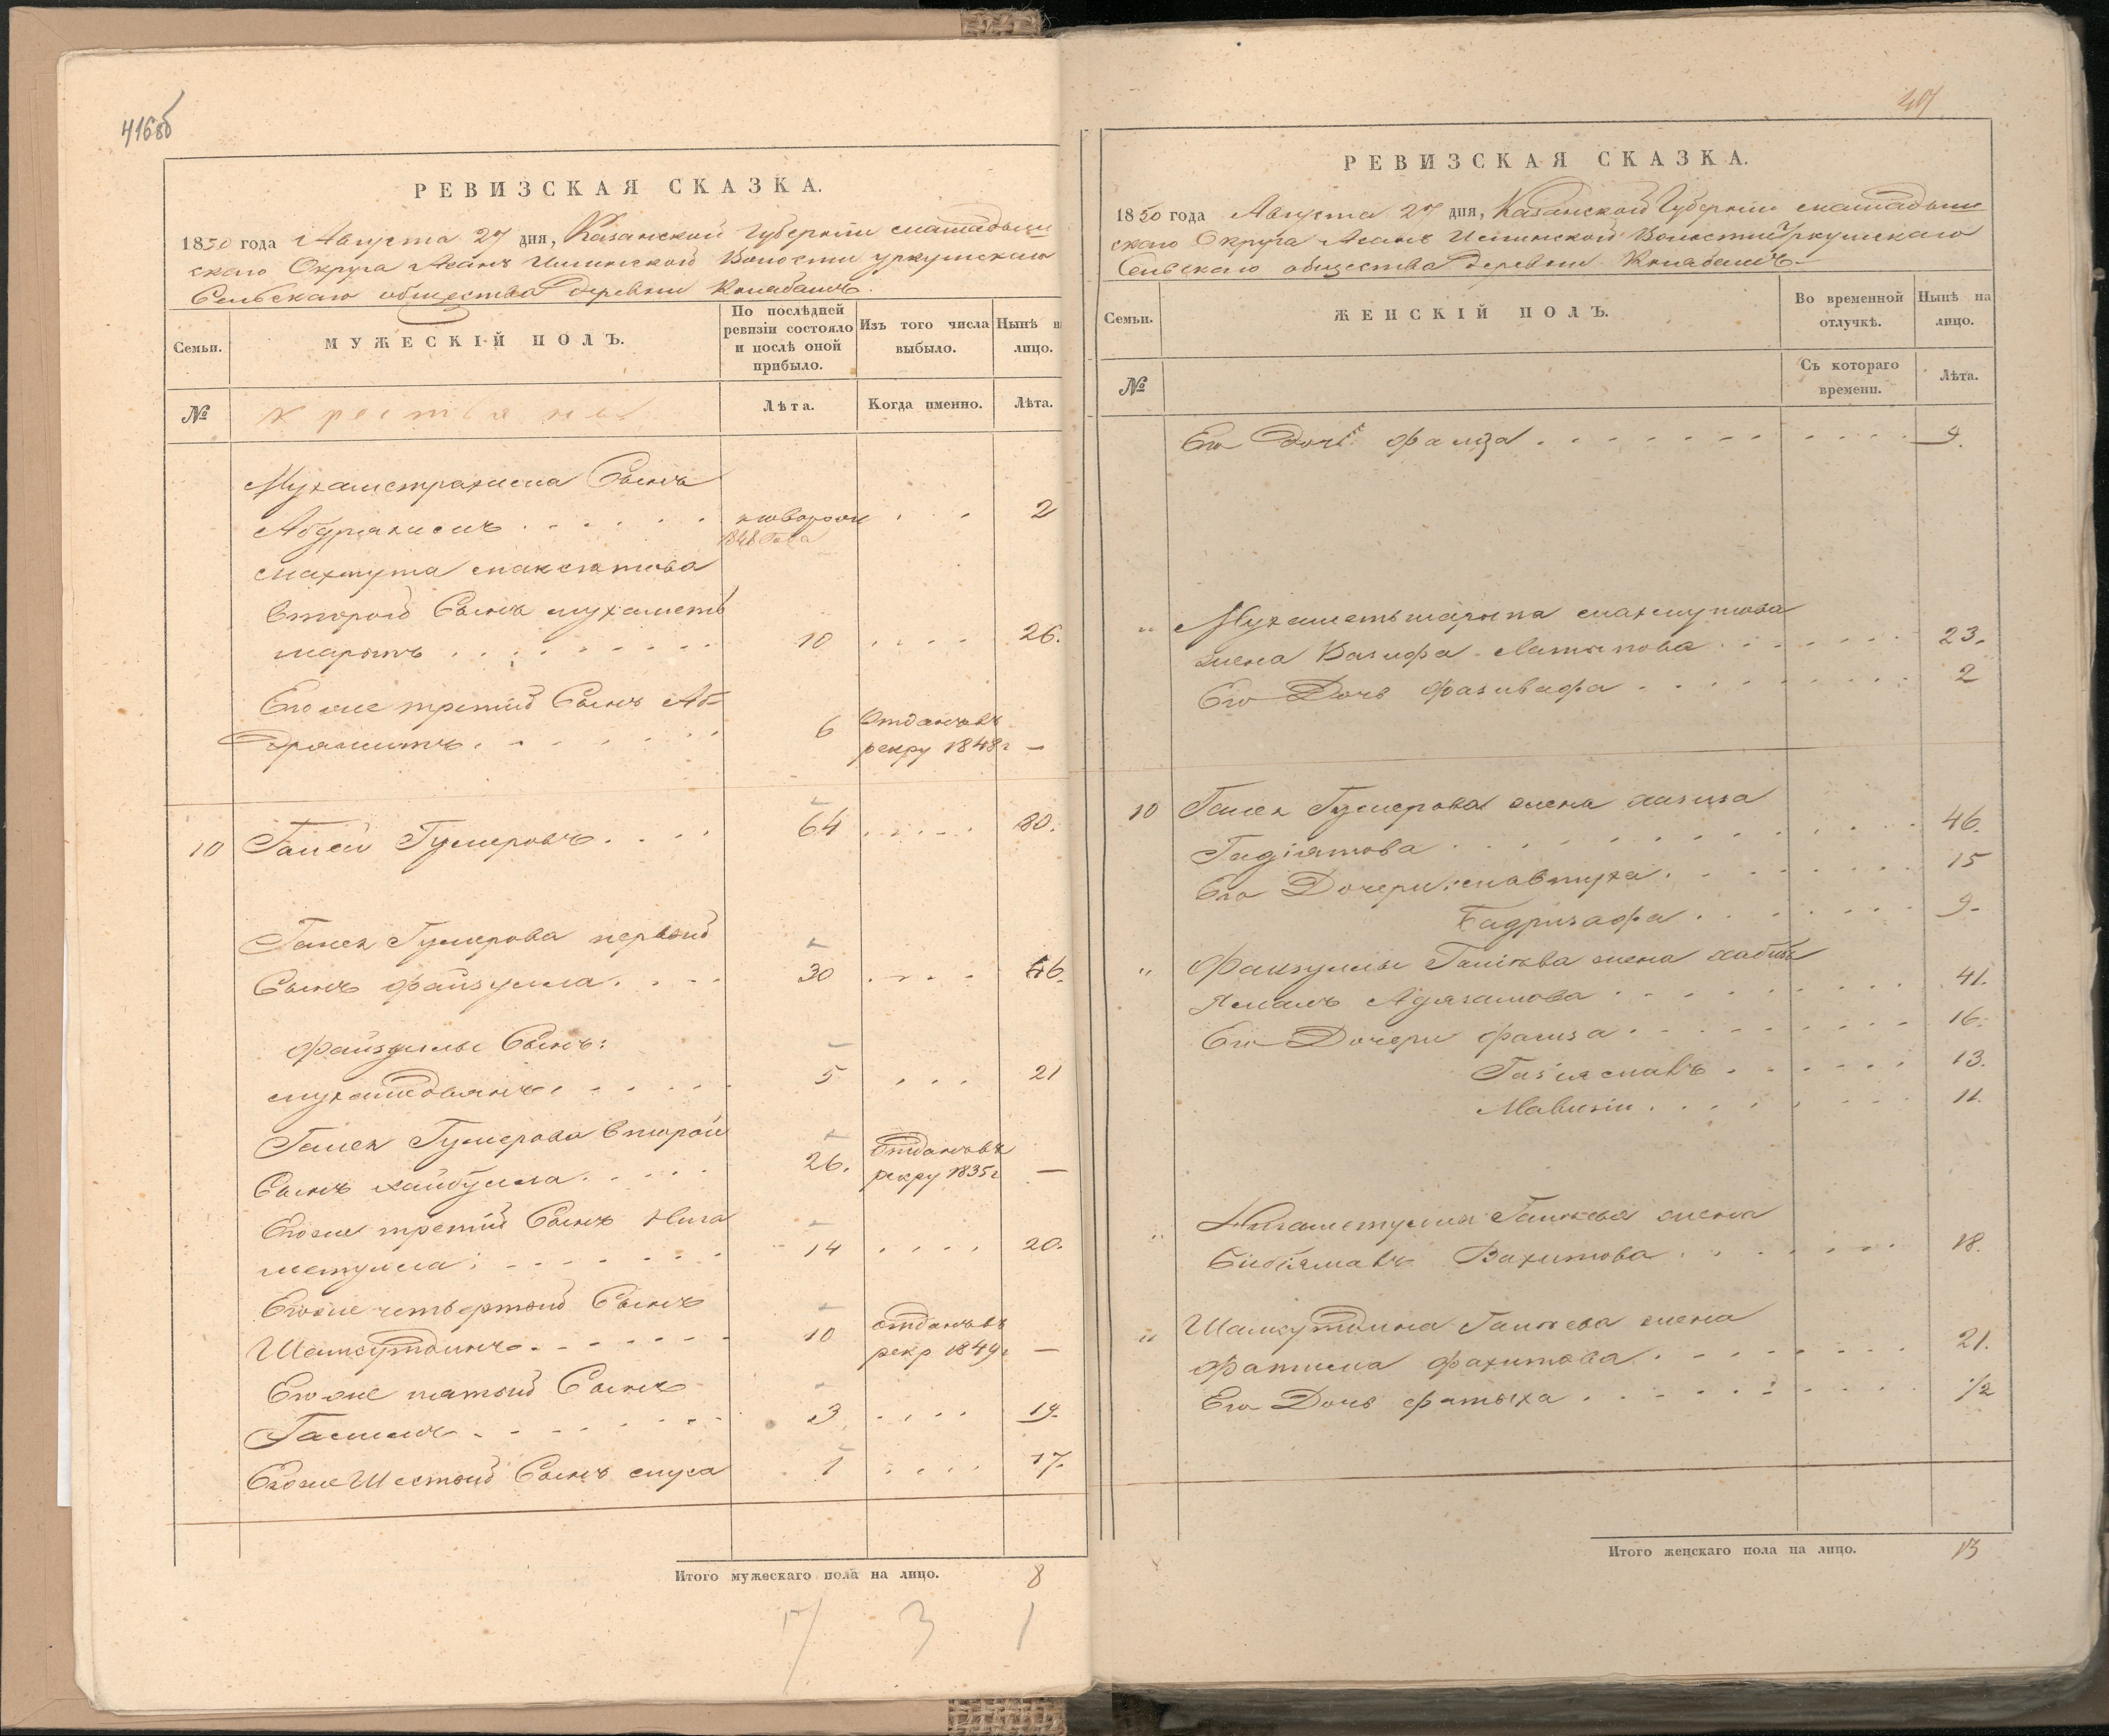 416об
РЕВИЗСКАЯ СКАЗКА.
1850 года Августа 27 дня, Казанской Губернии Мамадыш
скаго Округа Асанъ Илинской Волости Уркушскаго
Сельскаго общества деревни Коклабашъ.
Семьи.
МУЖЕСКІЙ ПОЛЪ.
По послѣдней ревизіи состояло и послѣ оной прибыло.
Изъ того числа выбыло.
Нынѣ на лицо.
№
Лѣта.
Когда именно.
Лѣта.
Мухаметрахима Сынъ
Абдрахимъ . . . . . . новорож . . 2
1848 года
Махмута
второй Сынъ Мухаметъ
шарыпъ . . . . . . . . . 10 . . . . 26.
Егоже третій Сынъ Аб-
драшитъ . . . . . . . 6 Отданъ въ
рекру 1848г —
10 Галей Гумеровъ . . . . 64 . . . . . 80.
Галея Гумерова первый
Сынъ Файзулла . . . . 30 . . . . 46.
Файзуллы Сынъ:
Мухаметдзянъ . . . . . . 5 . . . 21
Галея Гумерова второй
Сынъ Хайбулла . . . . 26. Отданъ въ
рекру 1835г —
Егоже третій Сынъ Нига
метулла . . . . . . . 14 . . . . 20.
Егоже четвертый Сынъ
Шамсутдинъ . . . . . . 10 отданъ въ
рекр 1849г —
Егоже пятый Сынъ
. . . . . . 3 . . . . 19.
Егоже Шестый Сынъ Муса 1 . . . . 17.
Итого мужескаго пола на лицо. 8
3 1
РЕВИЗСКАЯ СКАЗКА.
1850 года Августа 27 дня, Казанской Губерніи Мамадыш
скаго Округа Асанъ Илинской Волости Уркушскаго
Сельскаго общества деревни Коклабашъ.
Семьи.
ЖЕНСКІЙ ПОЛЪ.
Во временной отлучкѣ.
Нынѣ на лицо.
№
Съ котораго времени.
Лѣта.
Его Дочь Фаиза . . . . . . . . . . 9.
" Мухаметьшарыпа Махмутова
жена Вазифа Латыпова . . . . . . . 23.
Его Дочь Фазивафа . . . . . . . . . 2
10 Галея Гумерова жена Азиза
Гадіятова . . . . . . . . . . . 46.
Его Дочери: Мавтуха . . . . . . . 15
Бадризафа . . . . . . 9.
" Файзуллы Галѣева жена Хабиб
Ямалъ . . . . . . . . . 41.
Его Дочери Фаиза . . . . . . . . . 16.
. . . . . . 13.
. . . . . . . . 11.
" Нигаметуллы Галѣева жена
Бибіямалъ Вахитова . . . . . . . 18.
" Шамсутдина Галѣева жена
Фатима Фахитова . . . . . . . . 21.
Его Дочь Фатыха . . . . . . . . . 1/2
Итого женскаго пола на лицо. 13